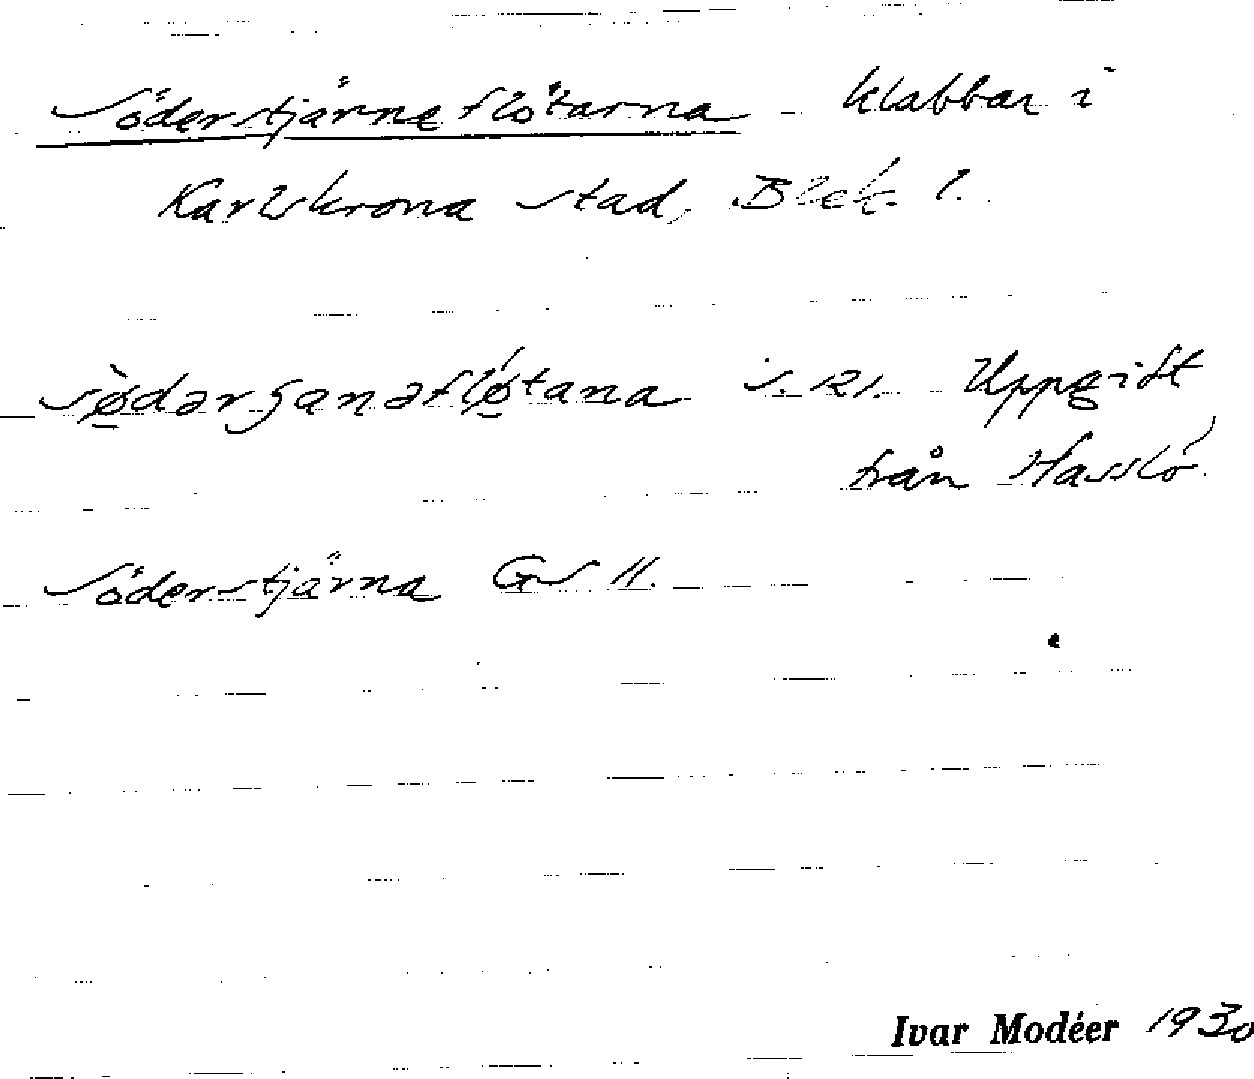 Söderstjärneflötarna – klabbar i
Karlskrona stad, Blek. l.
sø̀darʃanəflǿtana s. st. Uppgift
från Hasslö.
Söderstjärna GS 11.
Ivar Modéer 1930